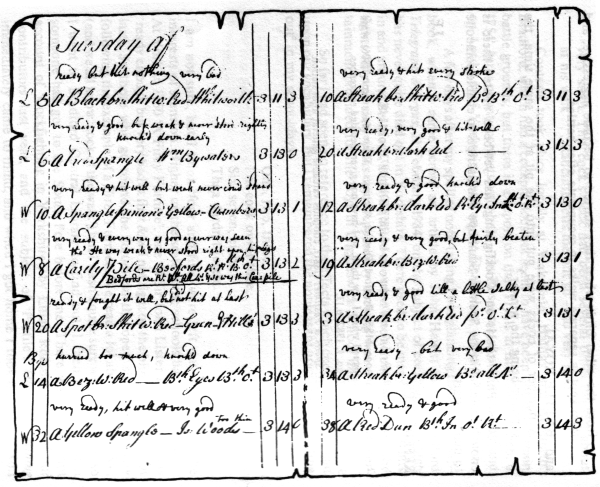 Tuesday Af
ready but hit nothing very bad
L 5 A Black br: Shit w: Red Whitworth 3 11 3
very ready & good but weak & never stood rightly
knock'd down early
L 6 A Spangle Wm Bywaters 3 13 0
very ready & hit well but weak never cou'd stand
W 10 A Spangle pinion'd Yellow 3 13 1
very ready & every way as good as ever was seen
tho' He was weak & never stood right upon his
W 8 A Pile Bedfords 3 13 2
Bedfords are & was this
ready & fought it well, but not hit at last
W 20 A Spot br: Shit w: Red Green 3 13 3
Bye hurried too much, knock'd down
L 14 A Bez: W: Red Bth Eyes Bth Ot 3 13 3
very ready, hit well & very good
too thin
W 32 A Yellow Spangle Is Woods 3 14 0
very ready & hit every stroke
10 A Streak br: Shit w: Red Bth Ot 3 11 3
very ready, very good & hit well
20 A Streak br: dark Red 3 12 3
very ready & good knock'd down
12 A Streak br: dark Red Rt Eye 3 13 0
very ready & very good, but fairly beaten
19 A Streak br: Bez: W: Red 3 13 1
very ready & good till a little at last
3 A Streak br: dark Red 3 13 1
very ready but very bad
34 A Streak br: Yellow 3 14 0
very ready & good
38 A Red Dun Bth In 3 14 3